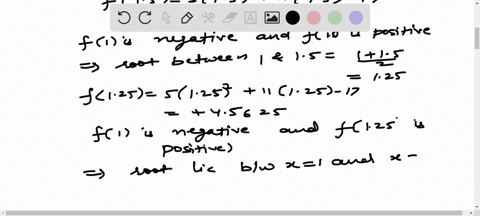 f(1) is negative and f(1.5) is positive
⇒ root between 1 & 1.5 = 1+1.5/2
= 1.25
f(1.25) = 5(1.25)² + 11(1.25) - 17
= + 4.5625
f(1) is negative and f(1.25 is
positive)
⇒ root lie b/w x=1 and x -